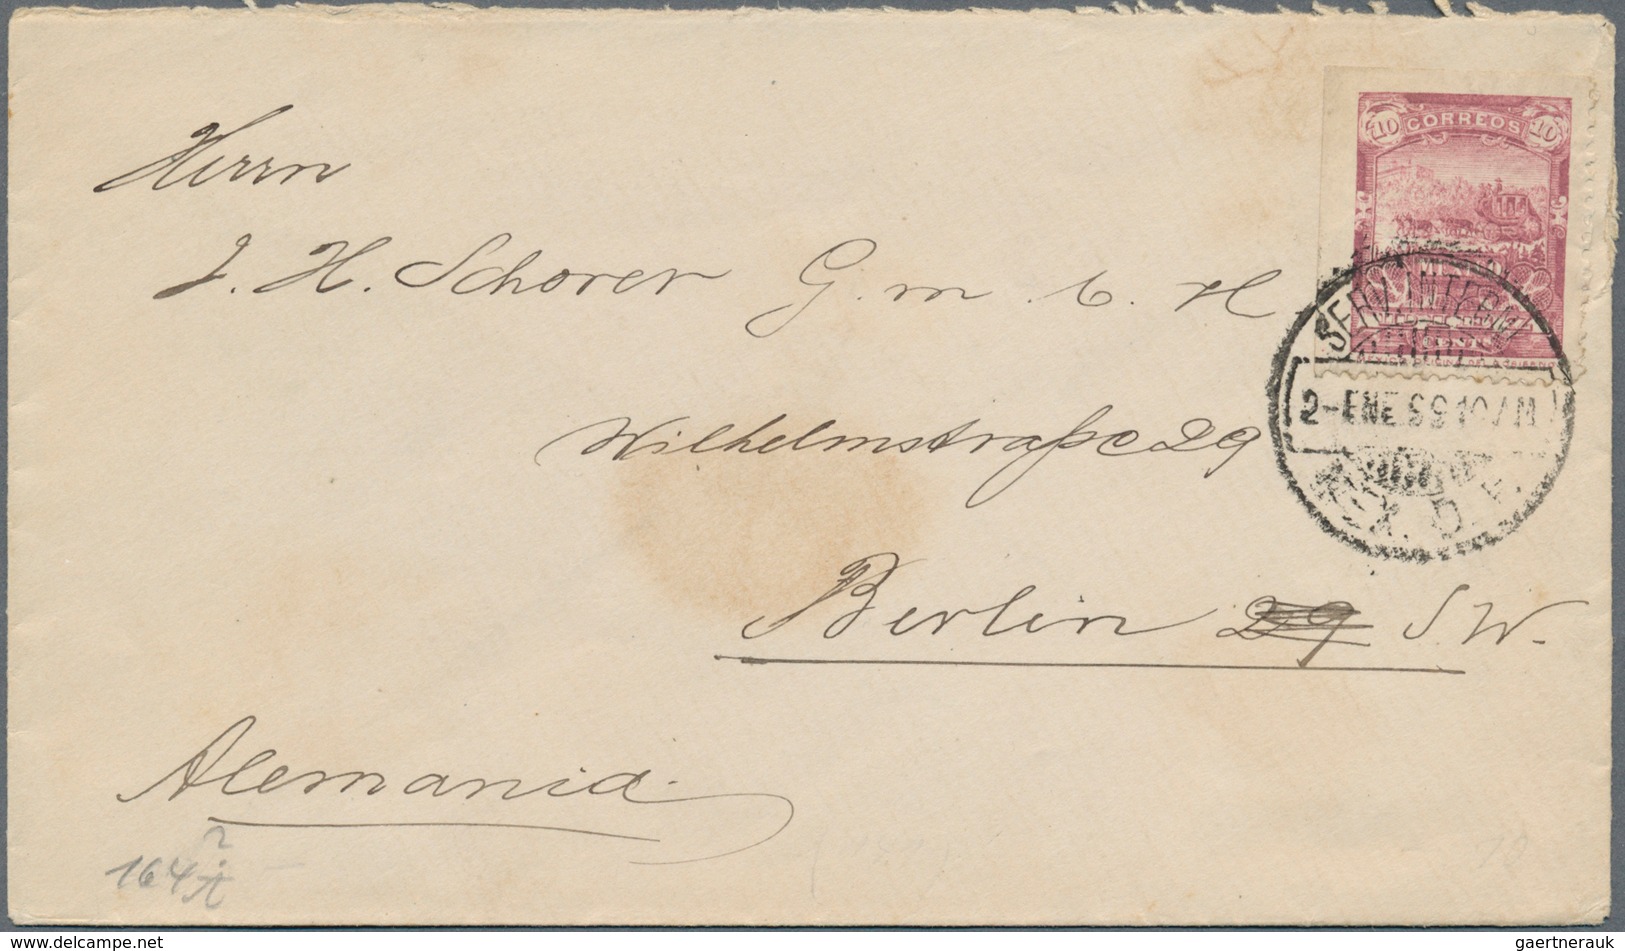 Herrn
J. H. Schorer G. m. b. H
Wilhelmstraße 29
Berlin 29 S.W.
Alemania.
164
10 CORREOS 10
2-ENE 99 10 / M
MEX. D.
www.delcampe.net
gaertnerauk